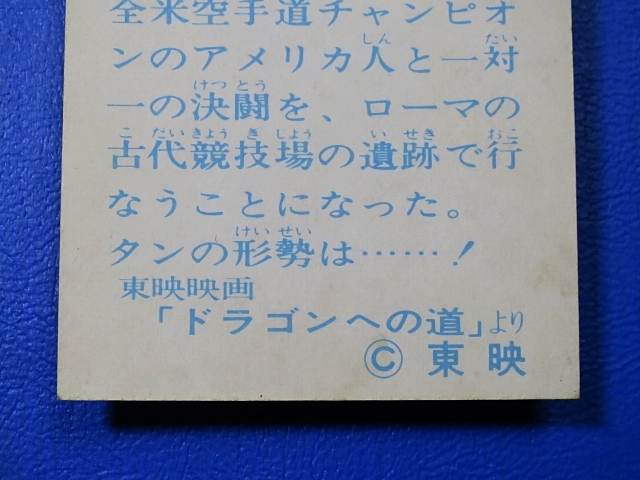 全米空手道チャンピオ
ンのアメリカ人と一対
一の決闘を、ローマの
古代競技場の遺跡で行
なうことになった。
タンの形勢は……！
東映映画
「ドラゴンへの道」より
Ⓒ 東映